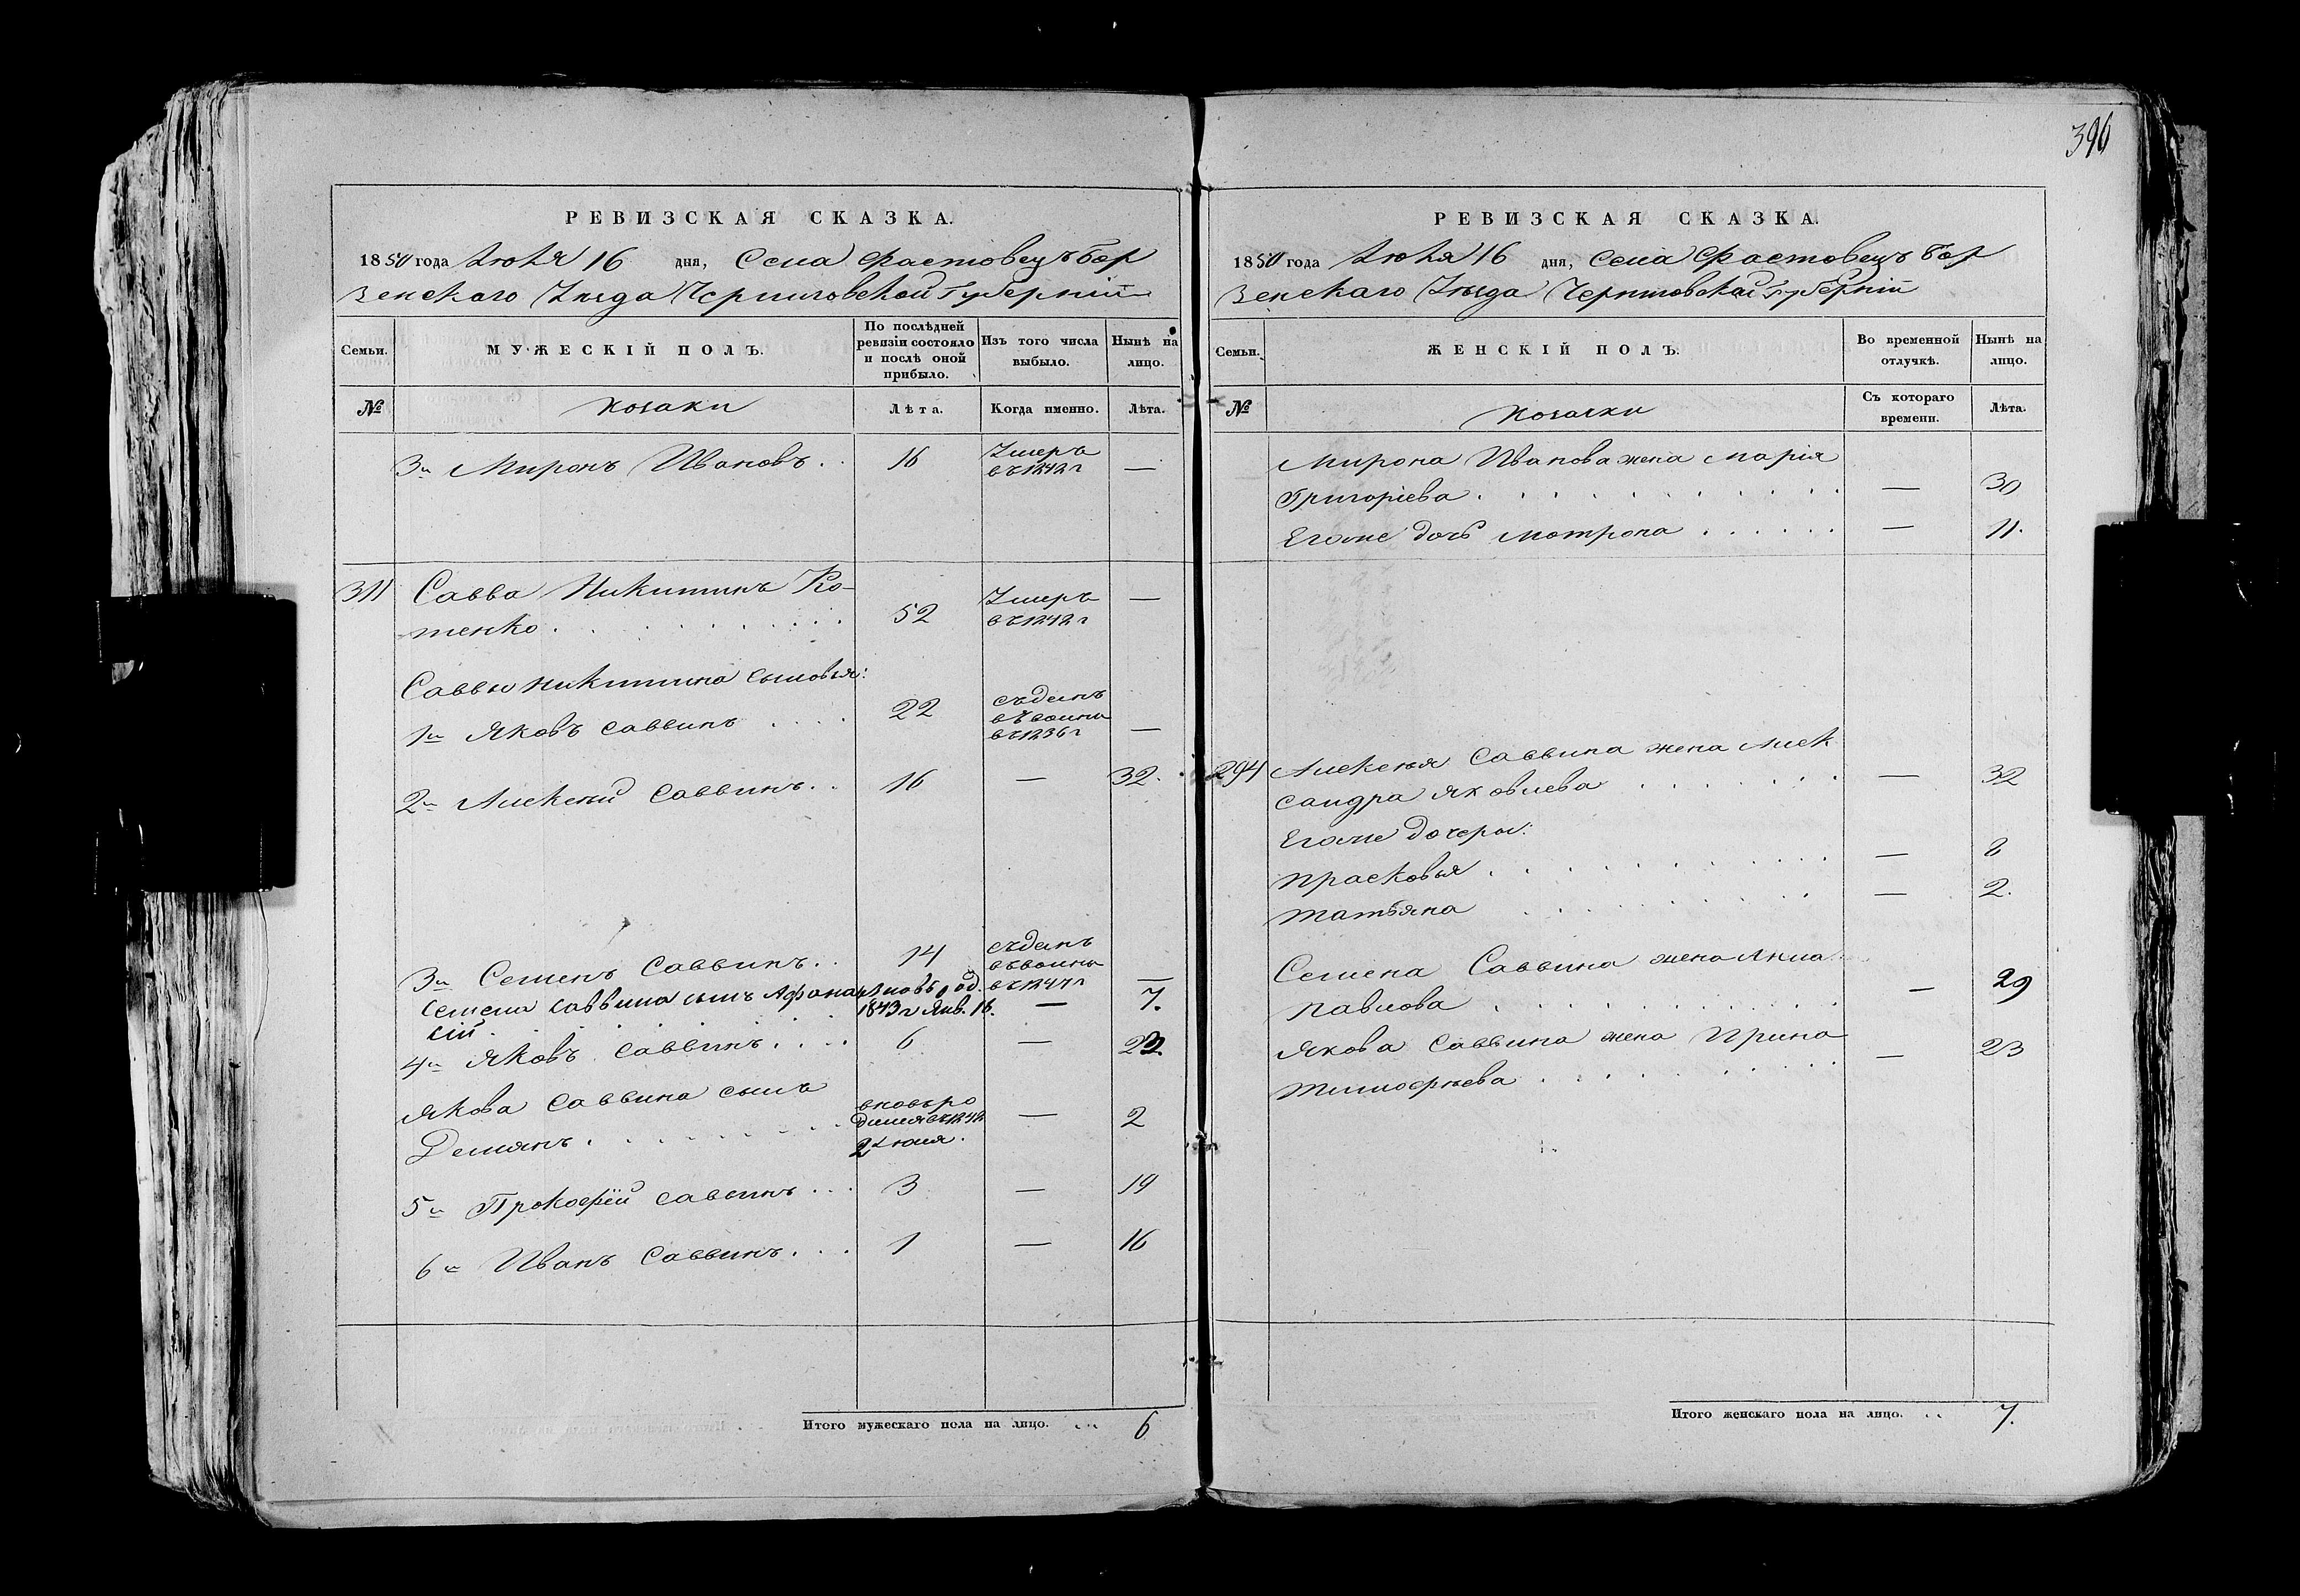 396
РЕВИЗСКАЯ СКАЗКА.
1850 года Июля 16 дня, Села Фастовецъ Бор
зенскаго Уѣзда Черниговской Губерніи
Семьи.
МУЖЕСКІЙ ПОЛЪ.
По послѣдней ревизіи состояло и послѣ оной прибыло.
Изъ того числа выбыло.
Нынѣ на лицо.
№
козаки
Лѣта.
Когда именно.
Лѣта.
3й Миронъ Ивановъ . . 16 Умеръ —
въ 1842 г
311 Савва Никитинъ Ко-
тенко . . . 52 Умеръ —
въ 1842 г
Саввы Никитина сыновья:
1й Яковъ Саввинъ . . . 22 съданъ
въ воины
въ 1836 г —
2й Алексѣй Саввинъ . . 16 — 32.
3й Семенъ Саввинъ . . 14 съданъ
въ воины
въ 1847 г —
Семена Саввина сынъ Афана вновь род.
сій . . . 1843 г Янв. 18. — 7.
4й Яковъ Саввинъ . . . 6 — 23.
Якова Саввина сынъ
Демянъ . . . вновь ро
дился въ 1848
2 Июля. — 2
5й Прокофій Саввинъ . . . 3 — 19
6й Иванъ Саввинъ . . . 1 — 16
Итого мужескаго пола на лицо. . . . 6
РЕВИЗСКАЯ СКАЗКА.
1850 года Июля 16 дня, Села Фастовецъ Бор
зенскаго Уѣзда Черниговской Губерніи
Семьи.
ЖЕНСКІЙ ПОЛЪ.
Во временной отлучкѣ.
Нынѣ на лицо.
№
козачки
Съ котораго времени.
Лѣта.
Мирона Иванова жена Марія
Григоріева . . . — 30
Егоже дочь Мотрона . . . — 11.
294 Алексѣя Саввина жена Алек
сандра Яковлева . . . — 32
Егоже дочеры:
Прасковья . . . — 8
Татьяна . . . — 2.
Семена Саввина жена Анна
Павлова . . . — 29
Якова Саввина жена Ирина
Тимофѣева . . . — 23
Итого женскаго пола на лицо. . . 7.